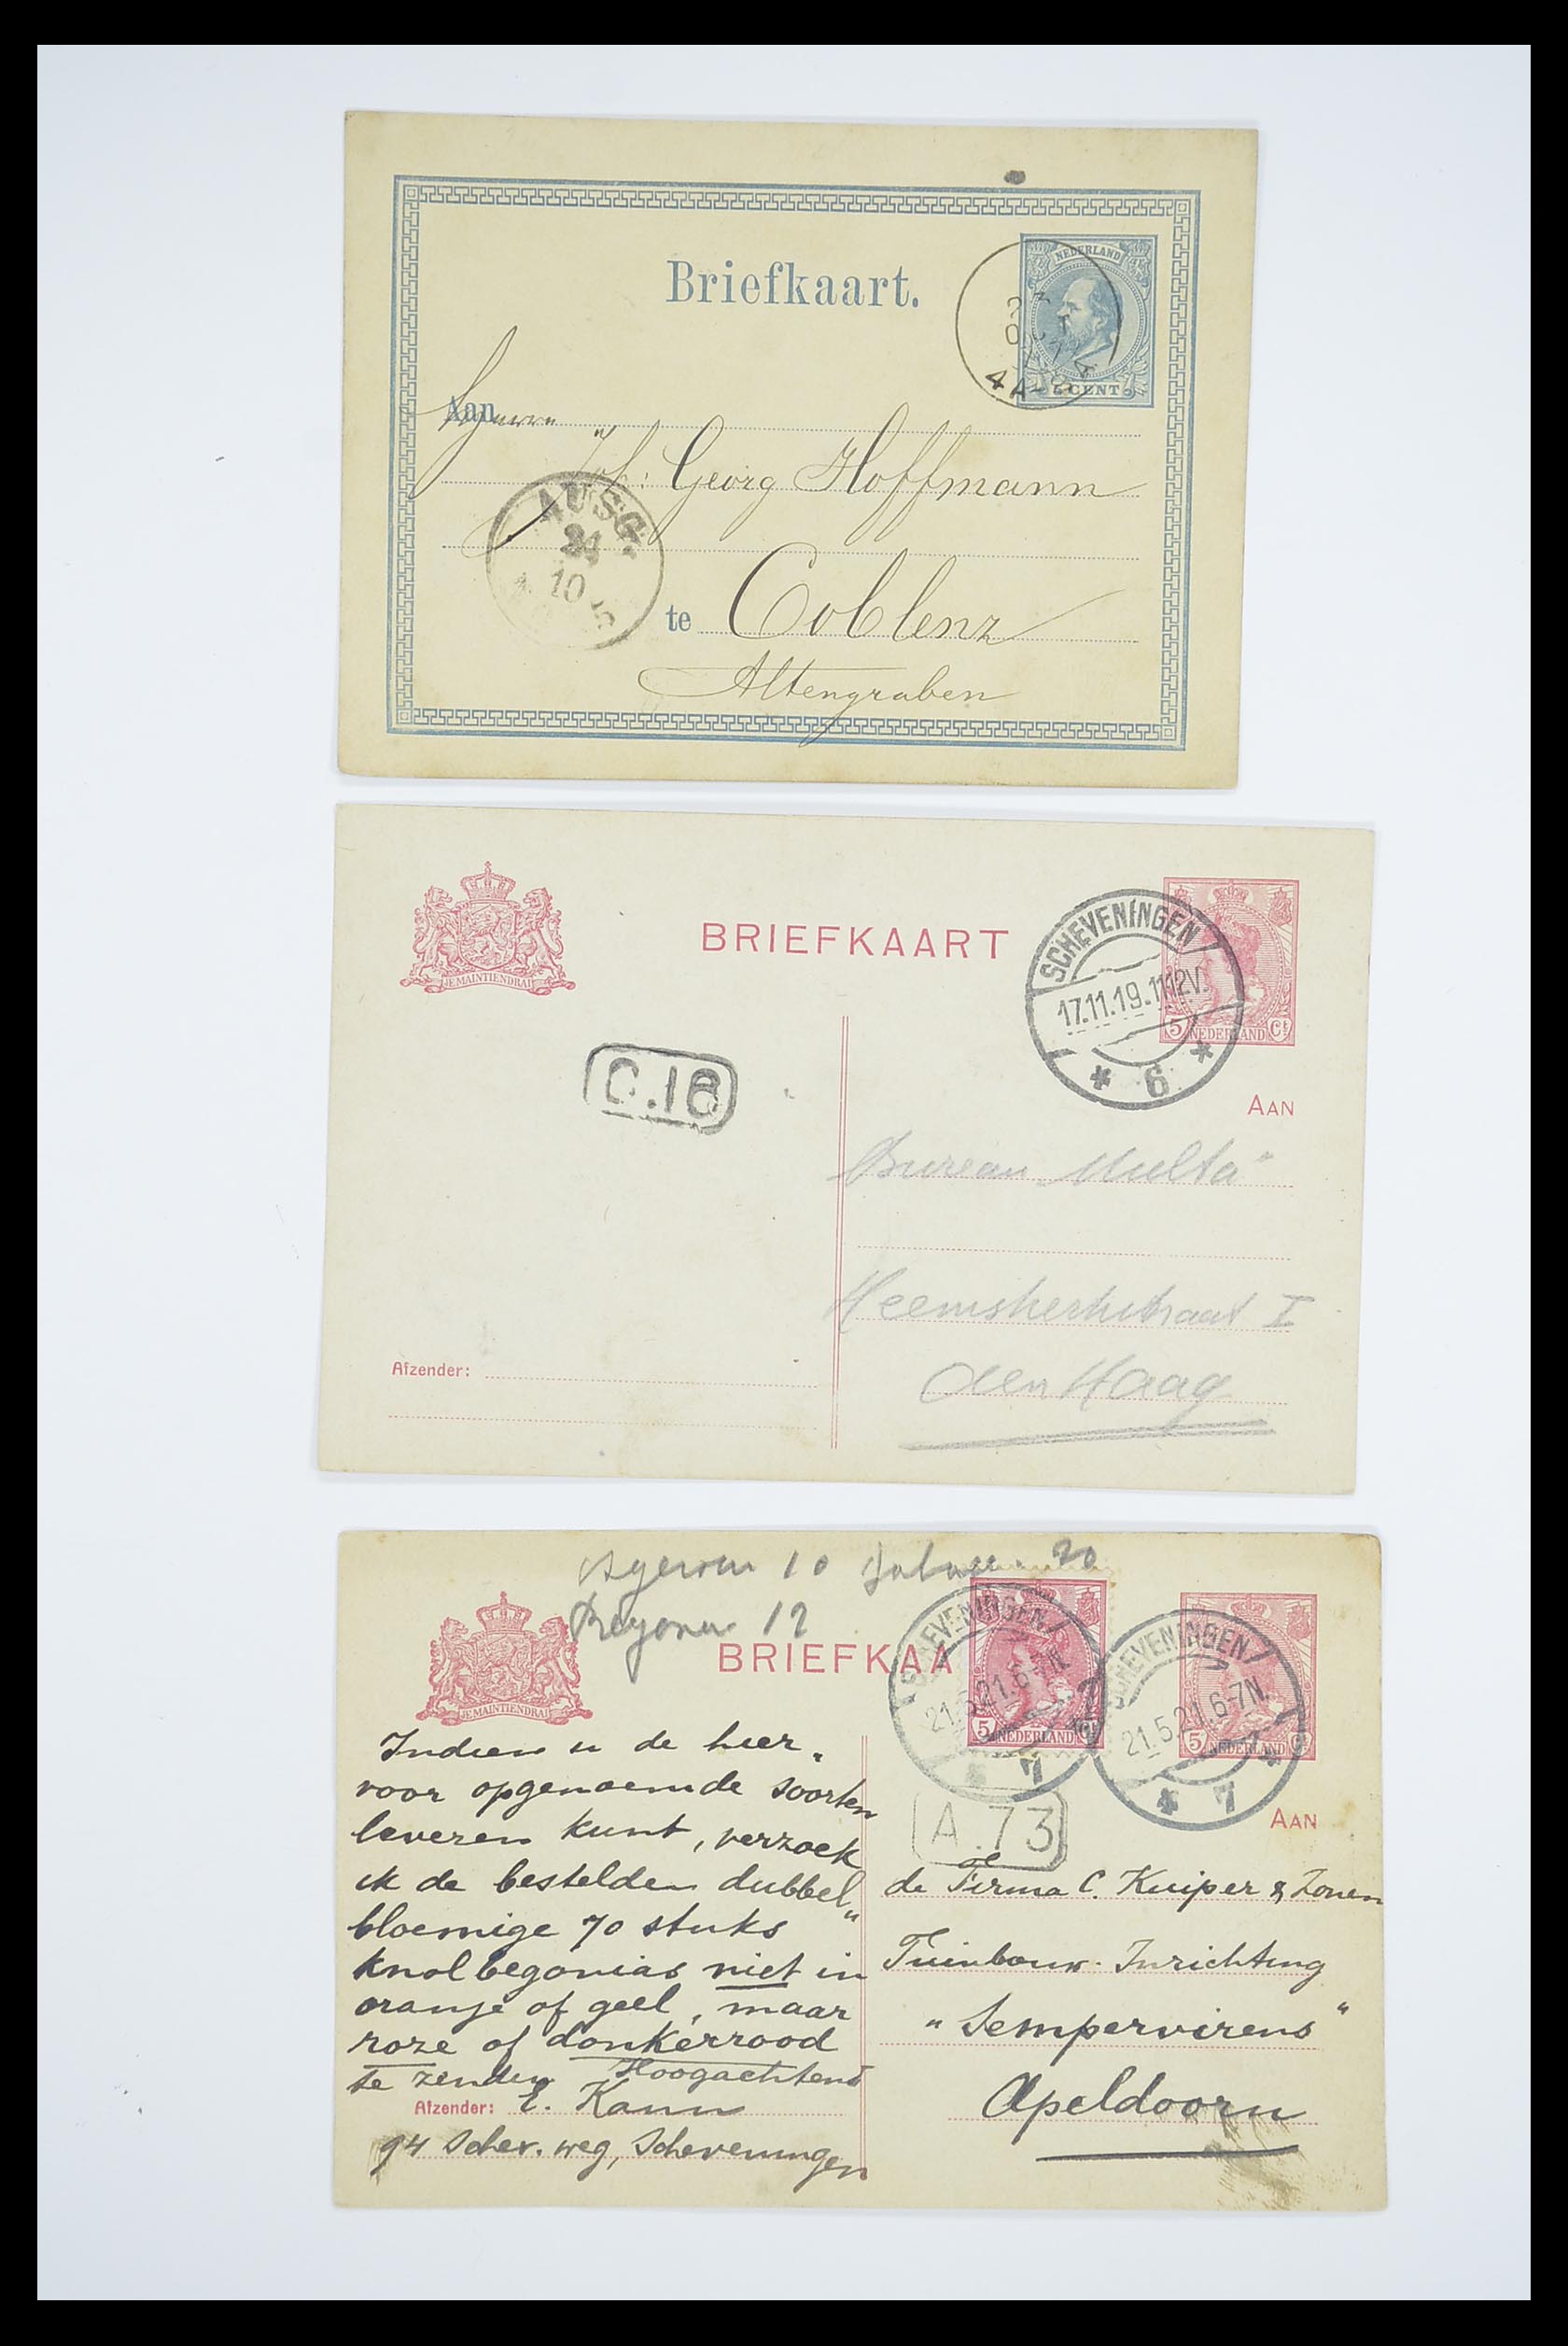 Briefkaart.
NEDERLAND
CENT
4 A-8
Aan
Joh: Georg Hoffmann
AUSG.
24
10
te Coblenz
Altengraben
BRIEFKAART
JE MAINTIENDRAI
SCHEVENINGEN
17.11.19.11-12V.
* 6 *
5 NEDERLAND Ct
C.18
AAN
Bureau Multa"
Heemskerkstraat I
den Haag
Afzender:
10 20
12
BRIEFKAA
JE MAINTIENDRAI
SCHEVENINGEN
21.5.21.6-7N.
* 7
5 NEDERLAND Ct
SCHEVENINGEN
21.5.21.6-7N.
* 7 *
5 NEDERLAND Ct
A.73
AAN
Indien u de hier-
voor opgenoemde soorten
leveren kunt, verzoek
ik de bestelden dubbel"
bloemige 70 stuks
knolbegonias niet in
oranje of geel, maar
roze of donkerrood
te zenden Hoogachtend
Afzender: E. Kann
94 Schev. weg, Scheveningen
de Firma C. Kuiper & Zonen
Tuinbouw-Inrichting
"Sempervirens"
Apeldoorn